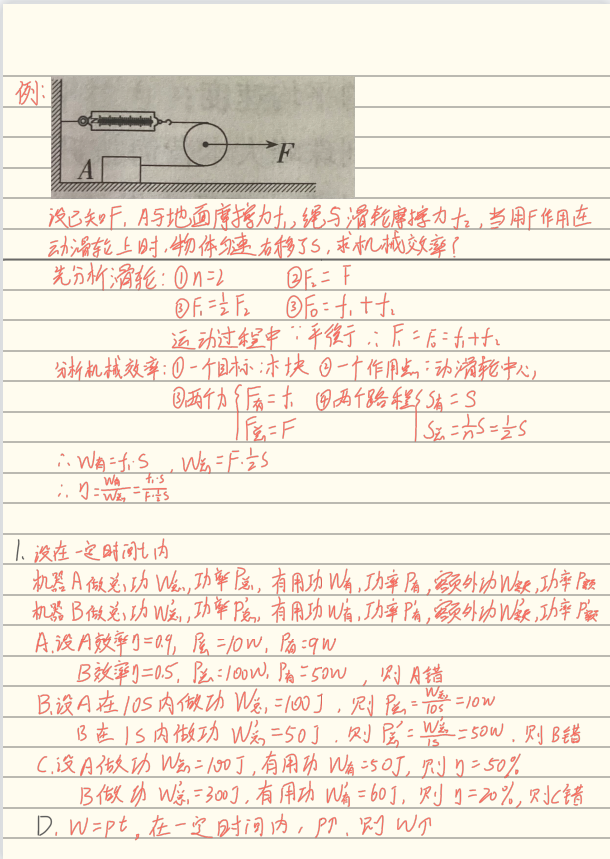 例:
A
F
设已知F, A与地面摩擦力f₁, 绳与滑轮摩擦力f₂, 当用F作用在
动滑轮上时, 物体匀速右移了S, 求机械效率?
先分析滑轮: ①n=2 ②F₂= F
③F₁=½F₂ ③F₀=f₁+f₂
运动过程中∵平衡 ∴ F₁=F₀=f₁+f₂
分析机械效率:①一个目标:木块 ②一个作用点:动滑轮中心,
③两个力{F有=f₁ ④两个路程{S有=S
F总=F S总=1/n S=½S
∴W有=f₁·S, W总=F·½S
∴η=W有/W总=f₁·S/F·½S
1. 设在一定时间t内
机器A做总功W总, 功率P总, 有用功W有, 功率P有, 额外功W额, 功率P额
机器B做总功W总′, 功率P总′, 有用功W有′, 功率P有′, 额外功W额′, 功率P额′
A.设A效率η=0.9, P总=10W, P有=9W
B效率η=0.5, P总=100W, P有=50W, 则A错
B.设A在10S内做功W总=100J, 则P总=W总/10S=10W
B在1S内做功W总′=50J. 则P总′=W总′/1S=50W. 则B错
C.设A做功W总=100J, 有用功W有=50J, 则η=50%
B做功W总′=300J, 有用功W有′=60J, 则η=20%, 则C错
D. W=pt, 在一定时间内, P↑, 则W↑